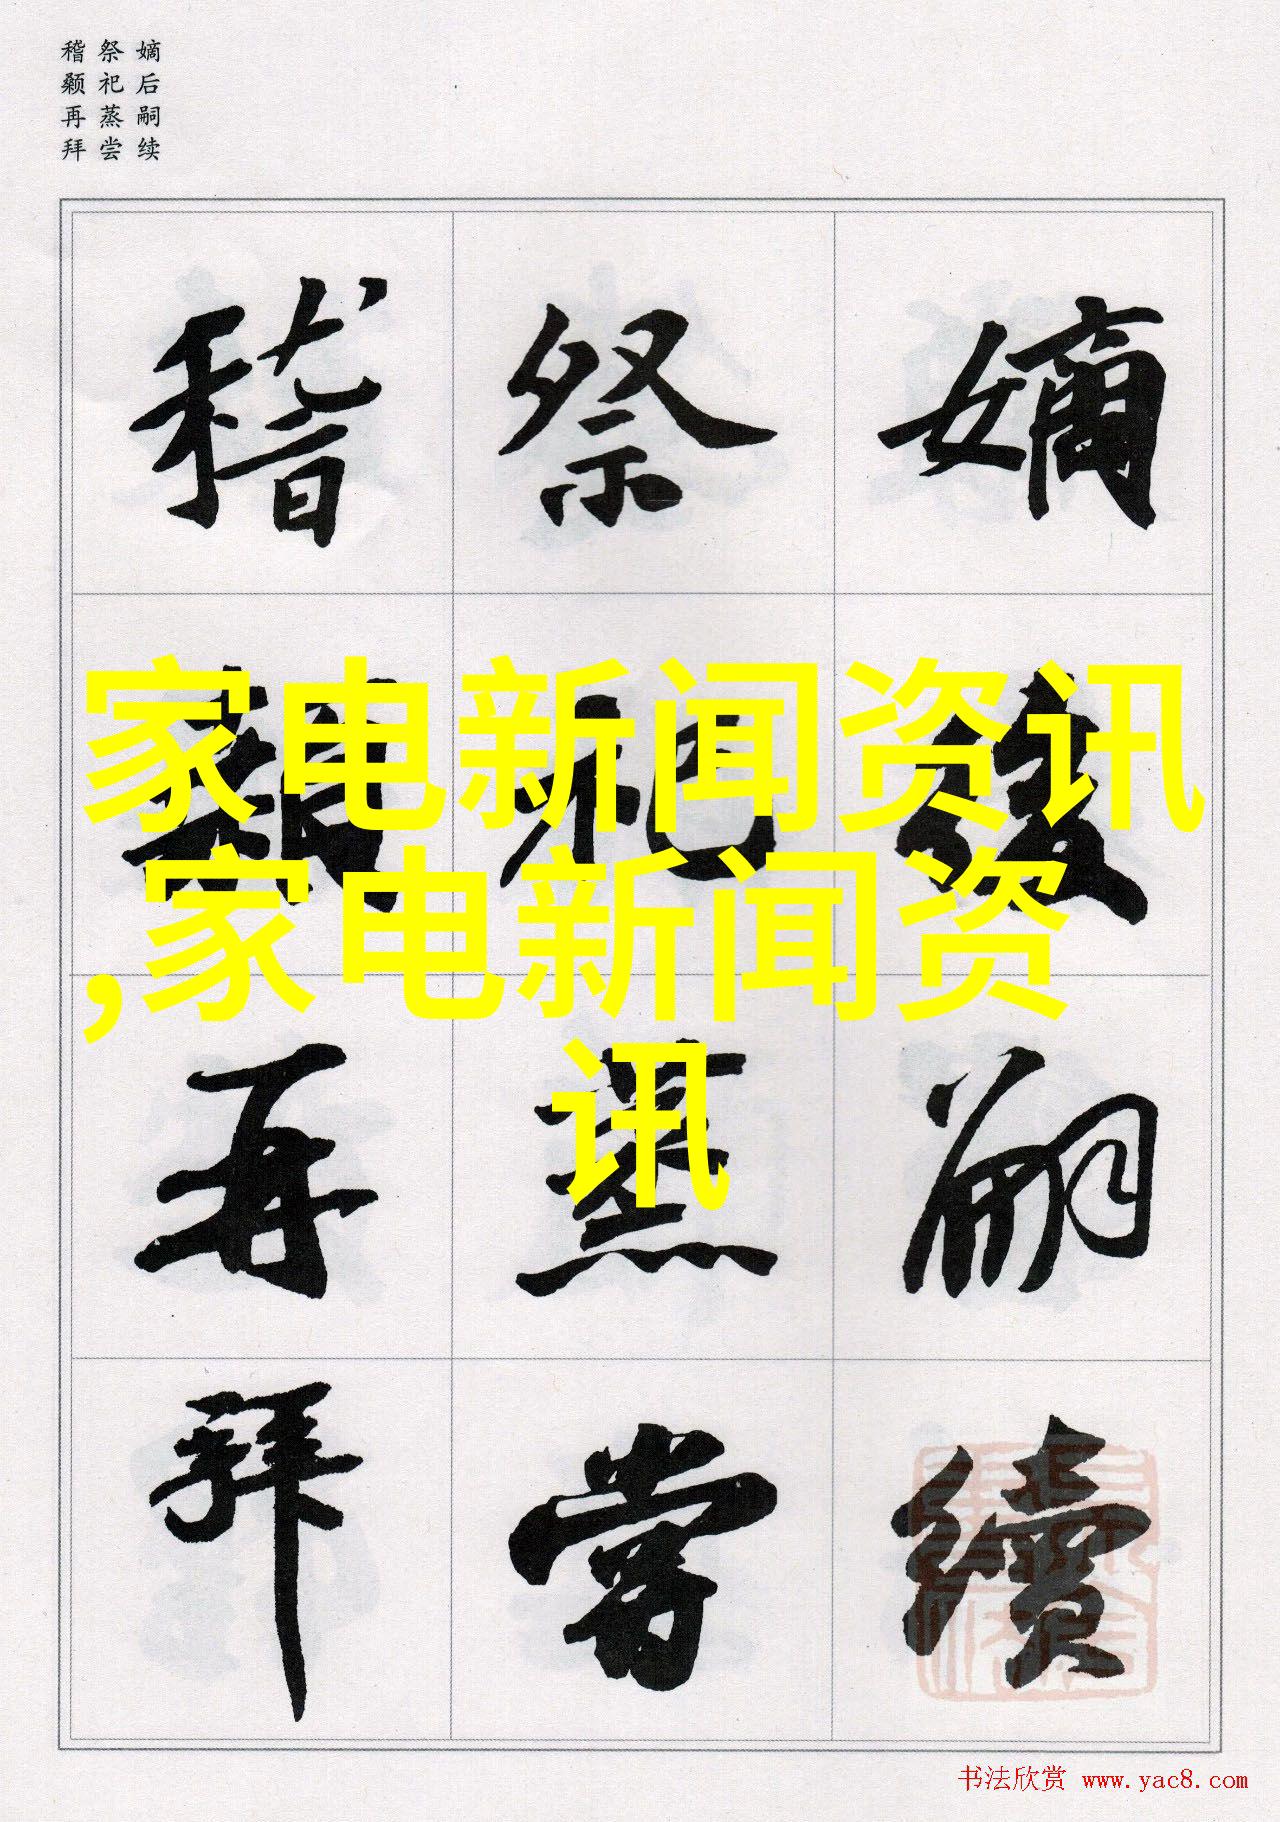 嫡后嗣续
祭祀蒸尝
稽颡再拜
嫡後嗣續
祭祀蒸嘗
稽顙再拜
家电新闻资讯
,家电新闻资
讯
书法欣赏 www.yac8.com